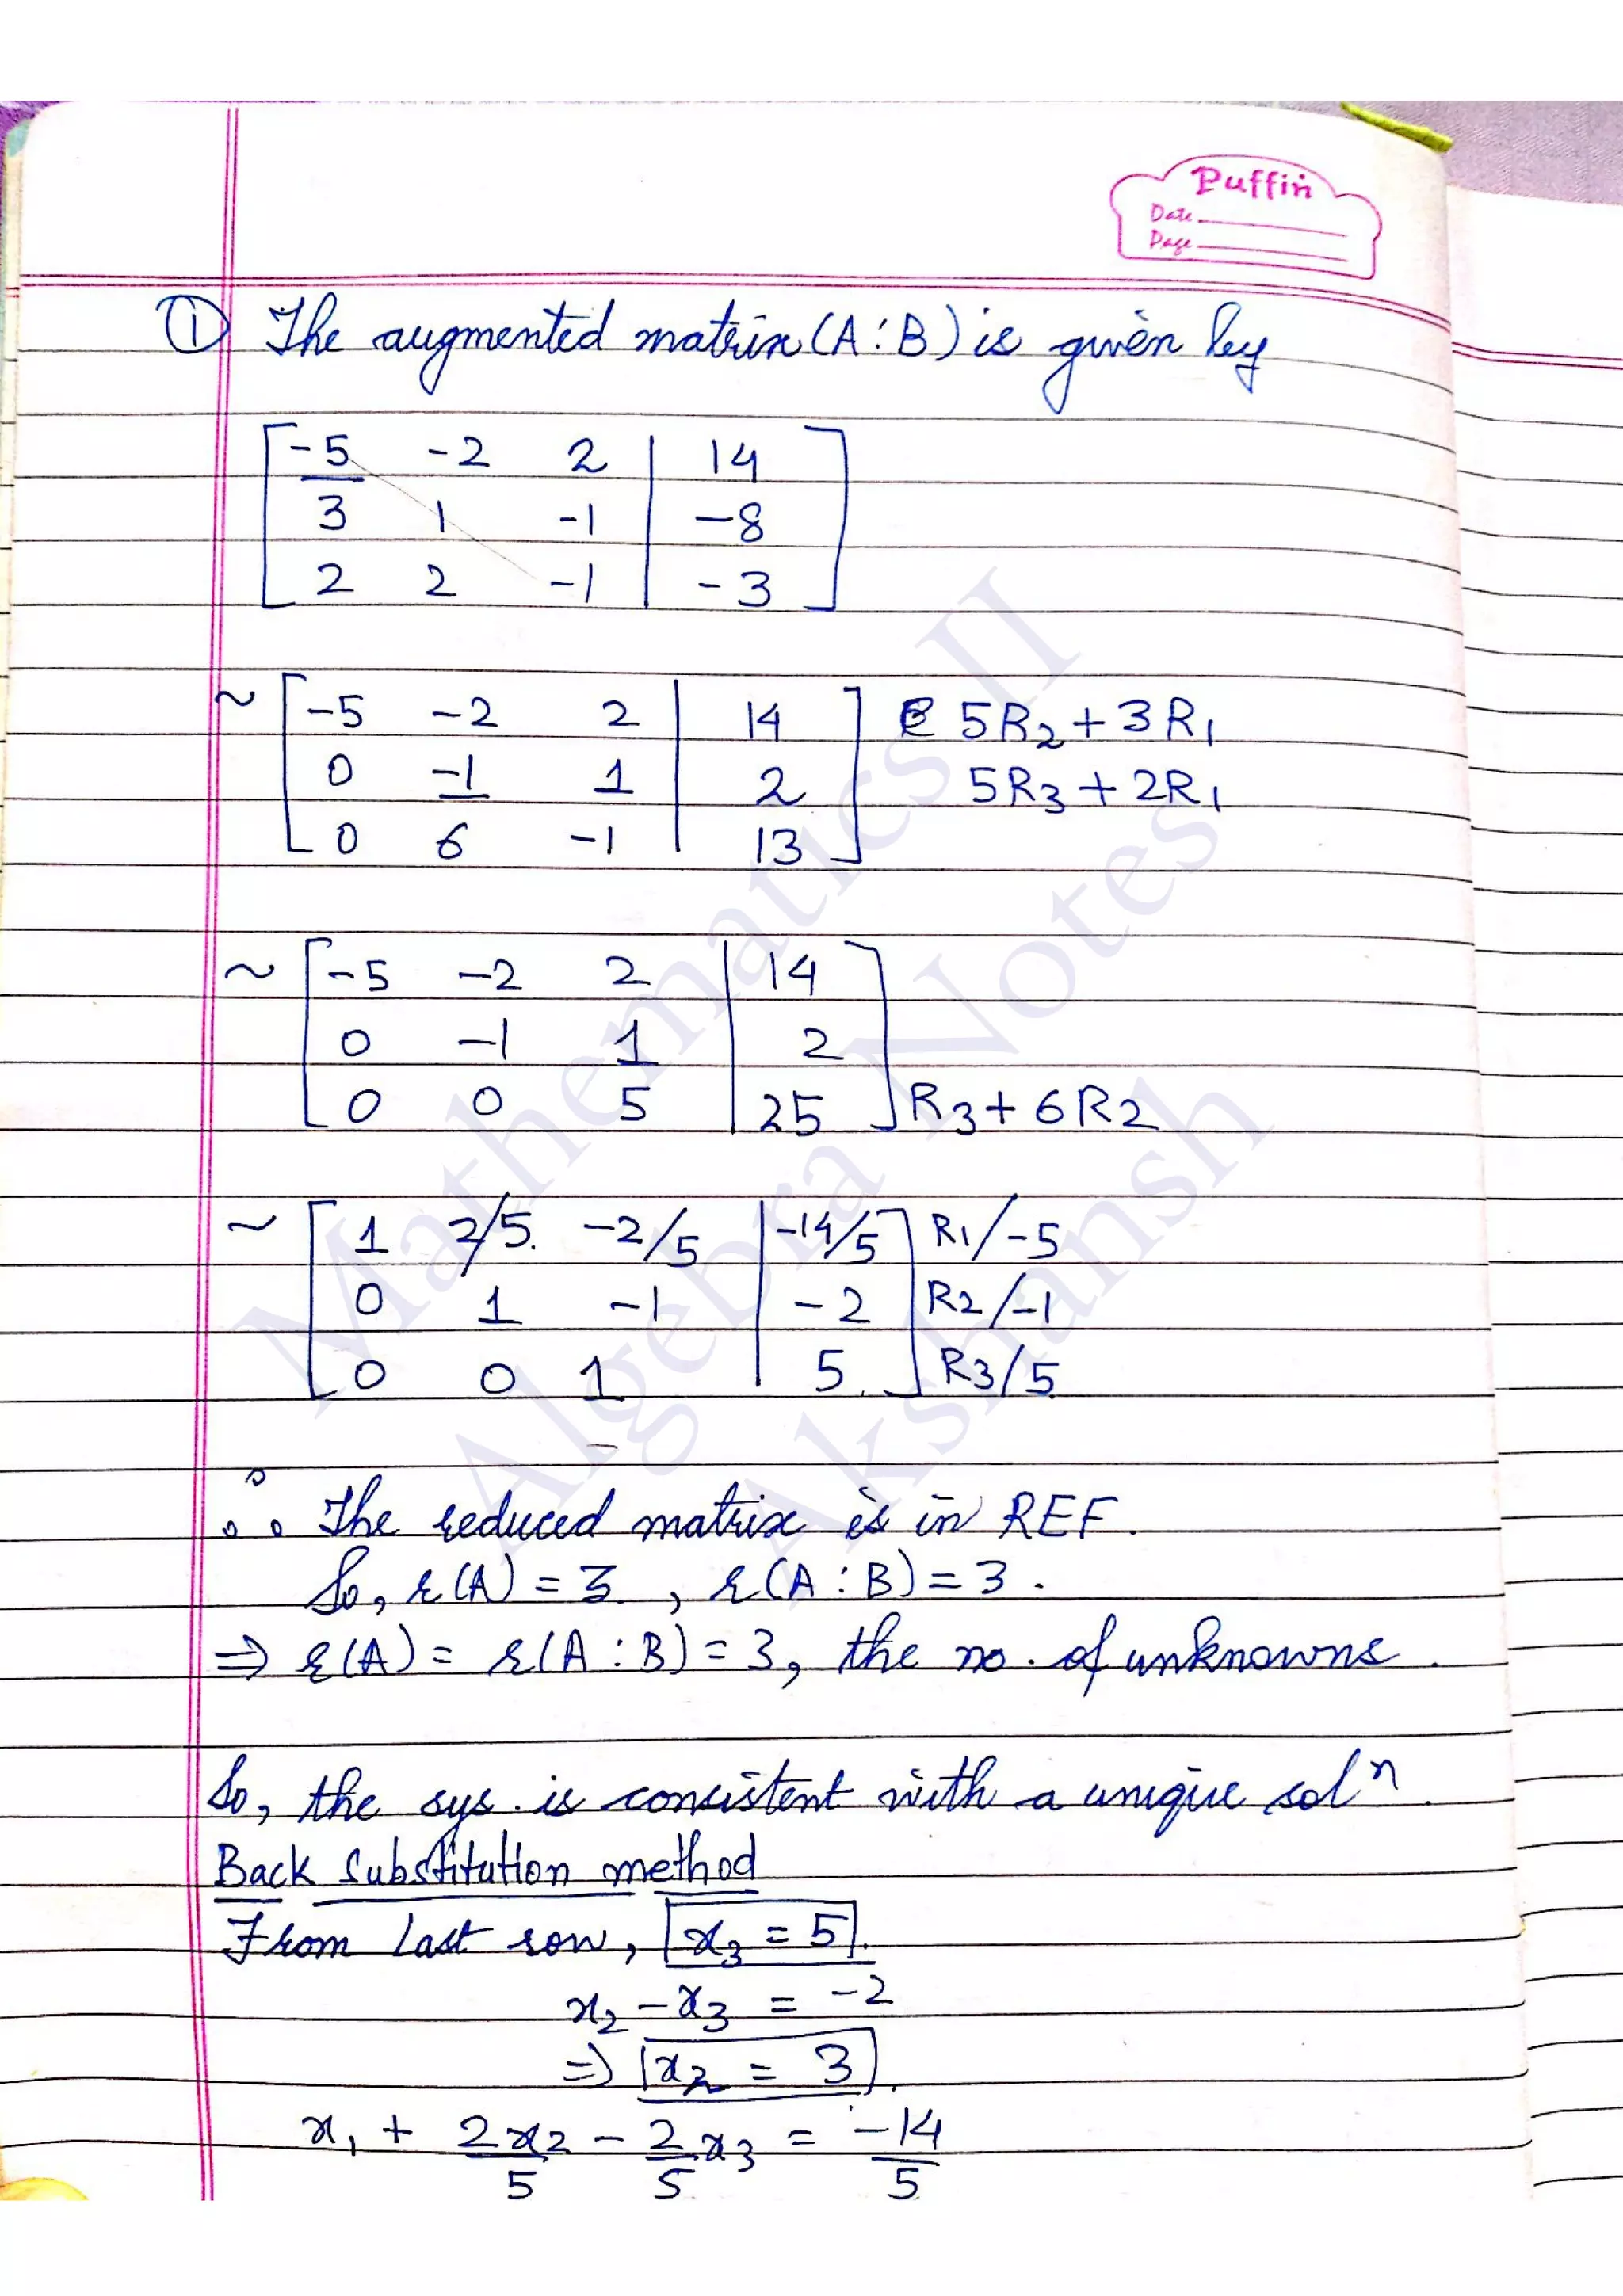 Puffin
Date
Page
① The augmented matrix (A:B) is given by
-5 -2 2 | 14
3 1 -1 | -8
2 2 -1 | -3
~ -5 -2 2 | 14 5R2+3R1
0 -1 1 | 2 5R3+2R1
0 6 -1 | 13
~ -5 -2 2 | 14
0 -1 1 | 2
0 0 5 | 25 R3+6R2
~ 1 2/5 -2/5 | -14/5 R1/-5
0 1 -1 | -2 R2/-1
0 0 1 | 5 R3/5
∴ The reduced matrix is in REF.
So, r(A) = 3, r(A:B) = 3.
⇒ r(A) = r(A:B) = 3, the no. of unknowns.
So, the sys. is consistent with a unique solⁿ.
Back substitution method
From last row, x₃ = 5.
x₂ - x₃ = -2
⇒ x₂ = 3.
x₁ + 2x₂/5 - 2/5 x₃ = -14/5
Mathematics II
Algebra Notes
Akshansh